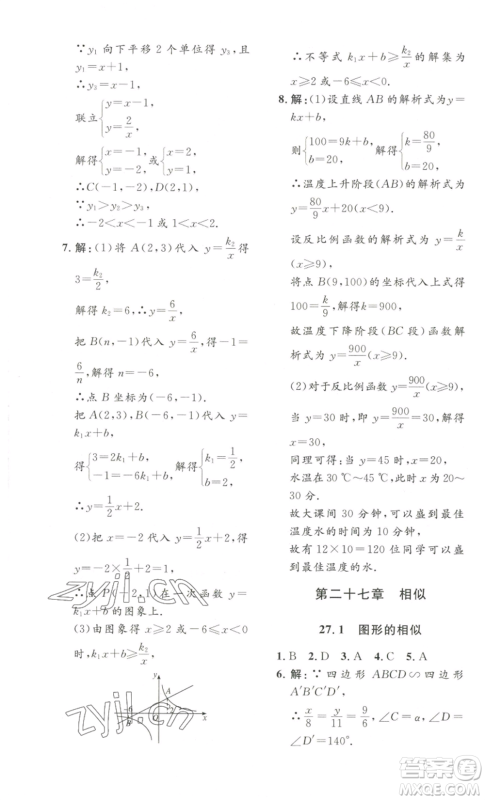 ∵y₁ 向下平移 2 个单位得 y₃,且
y₁=x+1,
∴y₃=x−1,
联立{y=x−1, y=2/x,
解得{x=−1, y=−2, 或{x=2, y=1,
∴C(−1,−2),
∵y₁>y₂>y₃,
∴−2<x<−1 或 x>1.
7. 解:(1)将 A(2,3)代入 y=k₂/x得
3=k₂/2,
解得 k₂=6,∴y=6/x,
把 B(n,−1)代入 y=6/x得−1=
6/n,解得 n=−6,
∴点 B 坐标为(−6,−1).
把 A(2,3),B(−6,−1)代入 y=k₁x+b,
得{3=2k₁+b, −1=−6k₁+b, 解得{k₁=1/2, b=2,
∴y=1/2x+2.
(2)把 x=−2 代入 y=1/2x+2 得
y=−2×1/2+2=1,
∴点 P(−2,1)在一次函数
(3)由图象得 k₁x+b≥k₂/x的图象
可得,
y
x
∴不等式 k₁x+b≥k₂/x的解集为
x≥2 或−6≤x<0.
8. 解:(1)设直线 AB 的解析式为 y=
kx+b,
则{100=9k+b, 20=b, 解得{k=80/9, b=20,
∴温度上升阶段(AB)的解析式为
y=80/9x+20(0≤x≤9).
设反比例函数的解析式为 y=k/x
(x≥9),
将点 B(9,100)的坐标代入上式得
100=k/9,
解得 k=900,
故温度下降阶段(BC 段)函数解析
式为 y=900/x(x≥9).
(2)对于反比例函数 y=900/x(x≥
9),当 y=30 时,即 y=900/x=30,解
得 x=30,
同理可得:当 y=20 时,
水温在 30 ℃~20 ℃为 20~
30 分.
故大课间时间仅为 10 分钟,
故有 12×10=120(人)能喝到最
佳温度的水.
第二十七章 相似
27.1 图形的相似
1. B 2. D 3. A 4. C 5. A
6. 解:∵四边形 ABCD∽四边形
A′B′C′D′,
∴x/8=y/11=9/6,∠C=α,∠D
=∠D′=140°.
zyjl.cn
zyjl.cn
答案圈
MXQE.COM